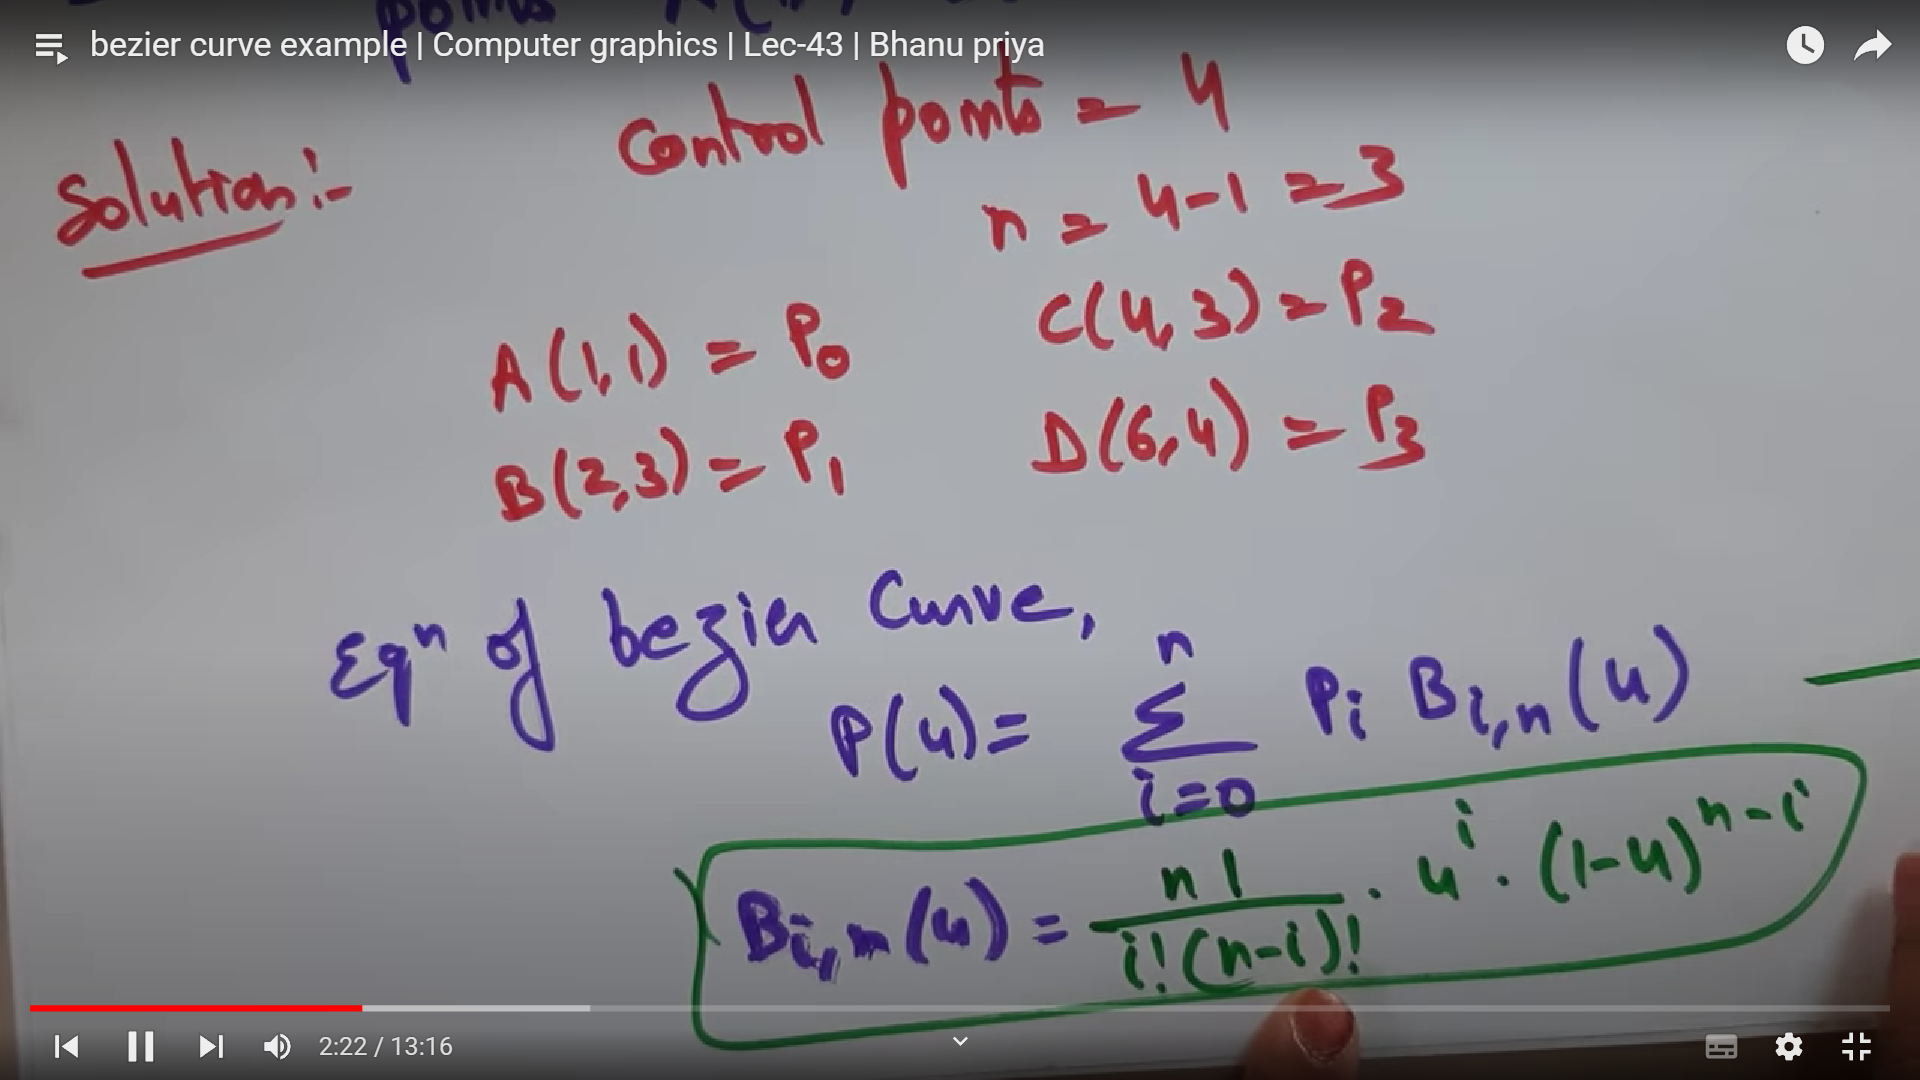 bezier curve example | Computer graphics | Lec-43 | Bhanu priya
points
Control points = 4
Solution:-
n = 4-1 = 3
A(1,1) = P0
C(4,3) = P2
B(2,3) = P1
D(6,4) = P3
Eqⁿ of bezier Curve,
P(u) = n Σ i=0 Pi Bi,n(u)
Bi,n(u) = n! / i!(n-i)! . u^i . (1-u)^n-i
2:22 / 13:16